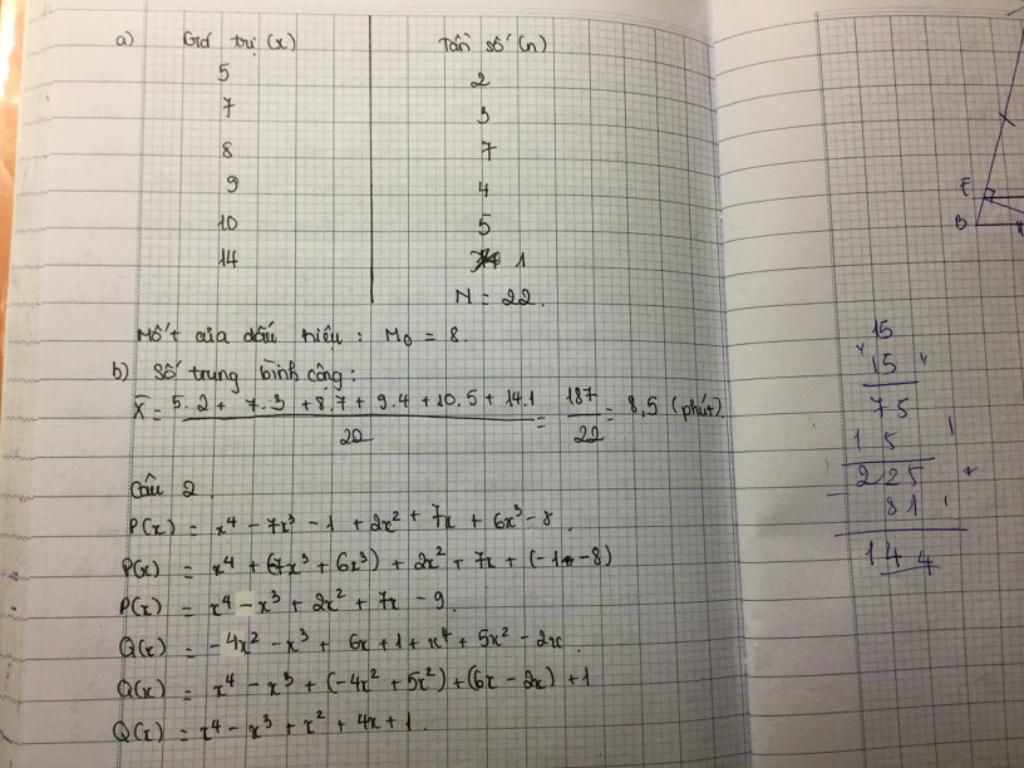 a) Giá trị (x) Tần số (n)
5 2
7 3
8 7
9 4
10 5
14 1
N = 22.
Mốt của dấu hiệu : M₀ = 8.
b) Số trung bình cộng :
X̄ = (5.2 + 7.3 + 8.7 + 9.4 + 10.5 + 14.1)/22 = 187/22 = 8,5 (phút)
Câu 2.
P(x) = x⁴ - 7x³ - 1 + 2x² + 7x + 6x³ - 8.
P(x) = x⁴ + (-7x³ + 6x³) + 2x² + 7x + (-1 - 8)
P(x) = x⁴ - x³ + 2x² + 7x - 9.
Q(x) = - 4x² - x³ + 6x + 1 + x⁴ + 5x² - 2x.
Q(x) = x⁴ - x³ + (-4x² + 5x²) + (6x - 2x) + 1
Q(x) = x⁴ - x³ + x² + 4x + 1.
E
B
15
15
75
15
225
81
144